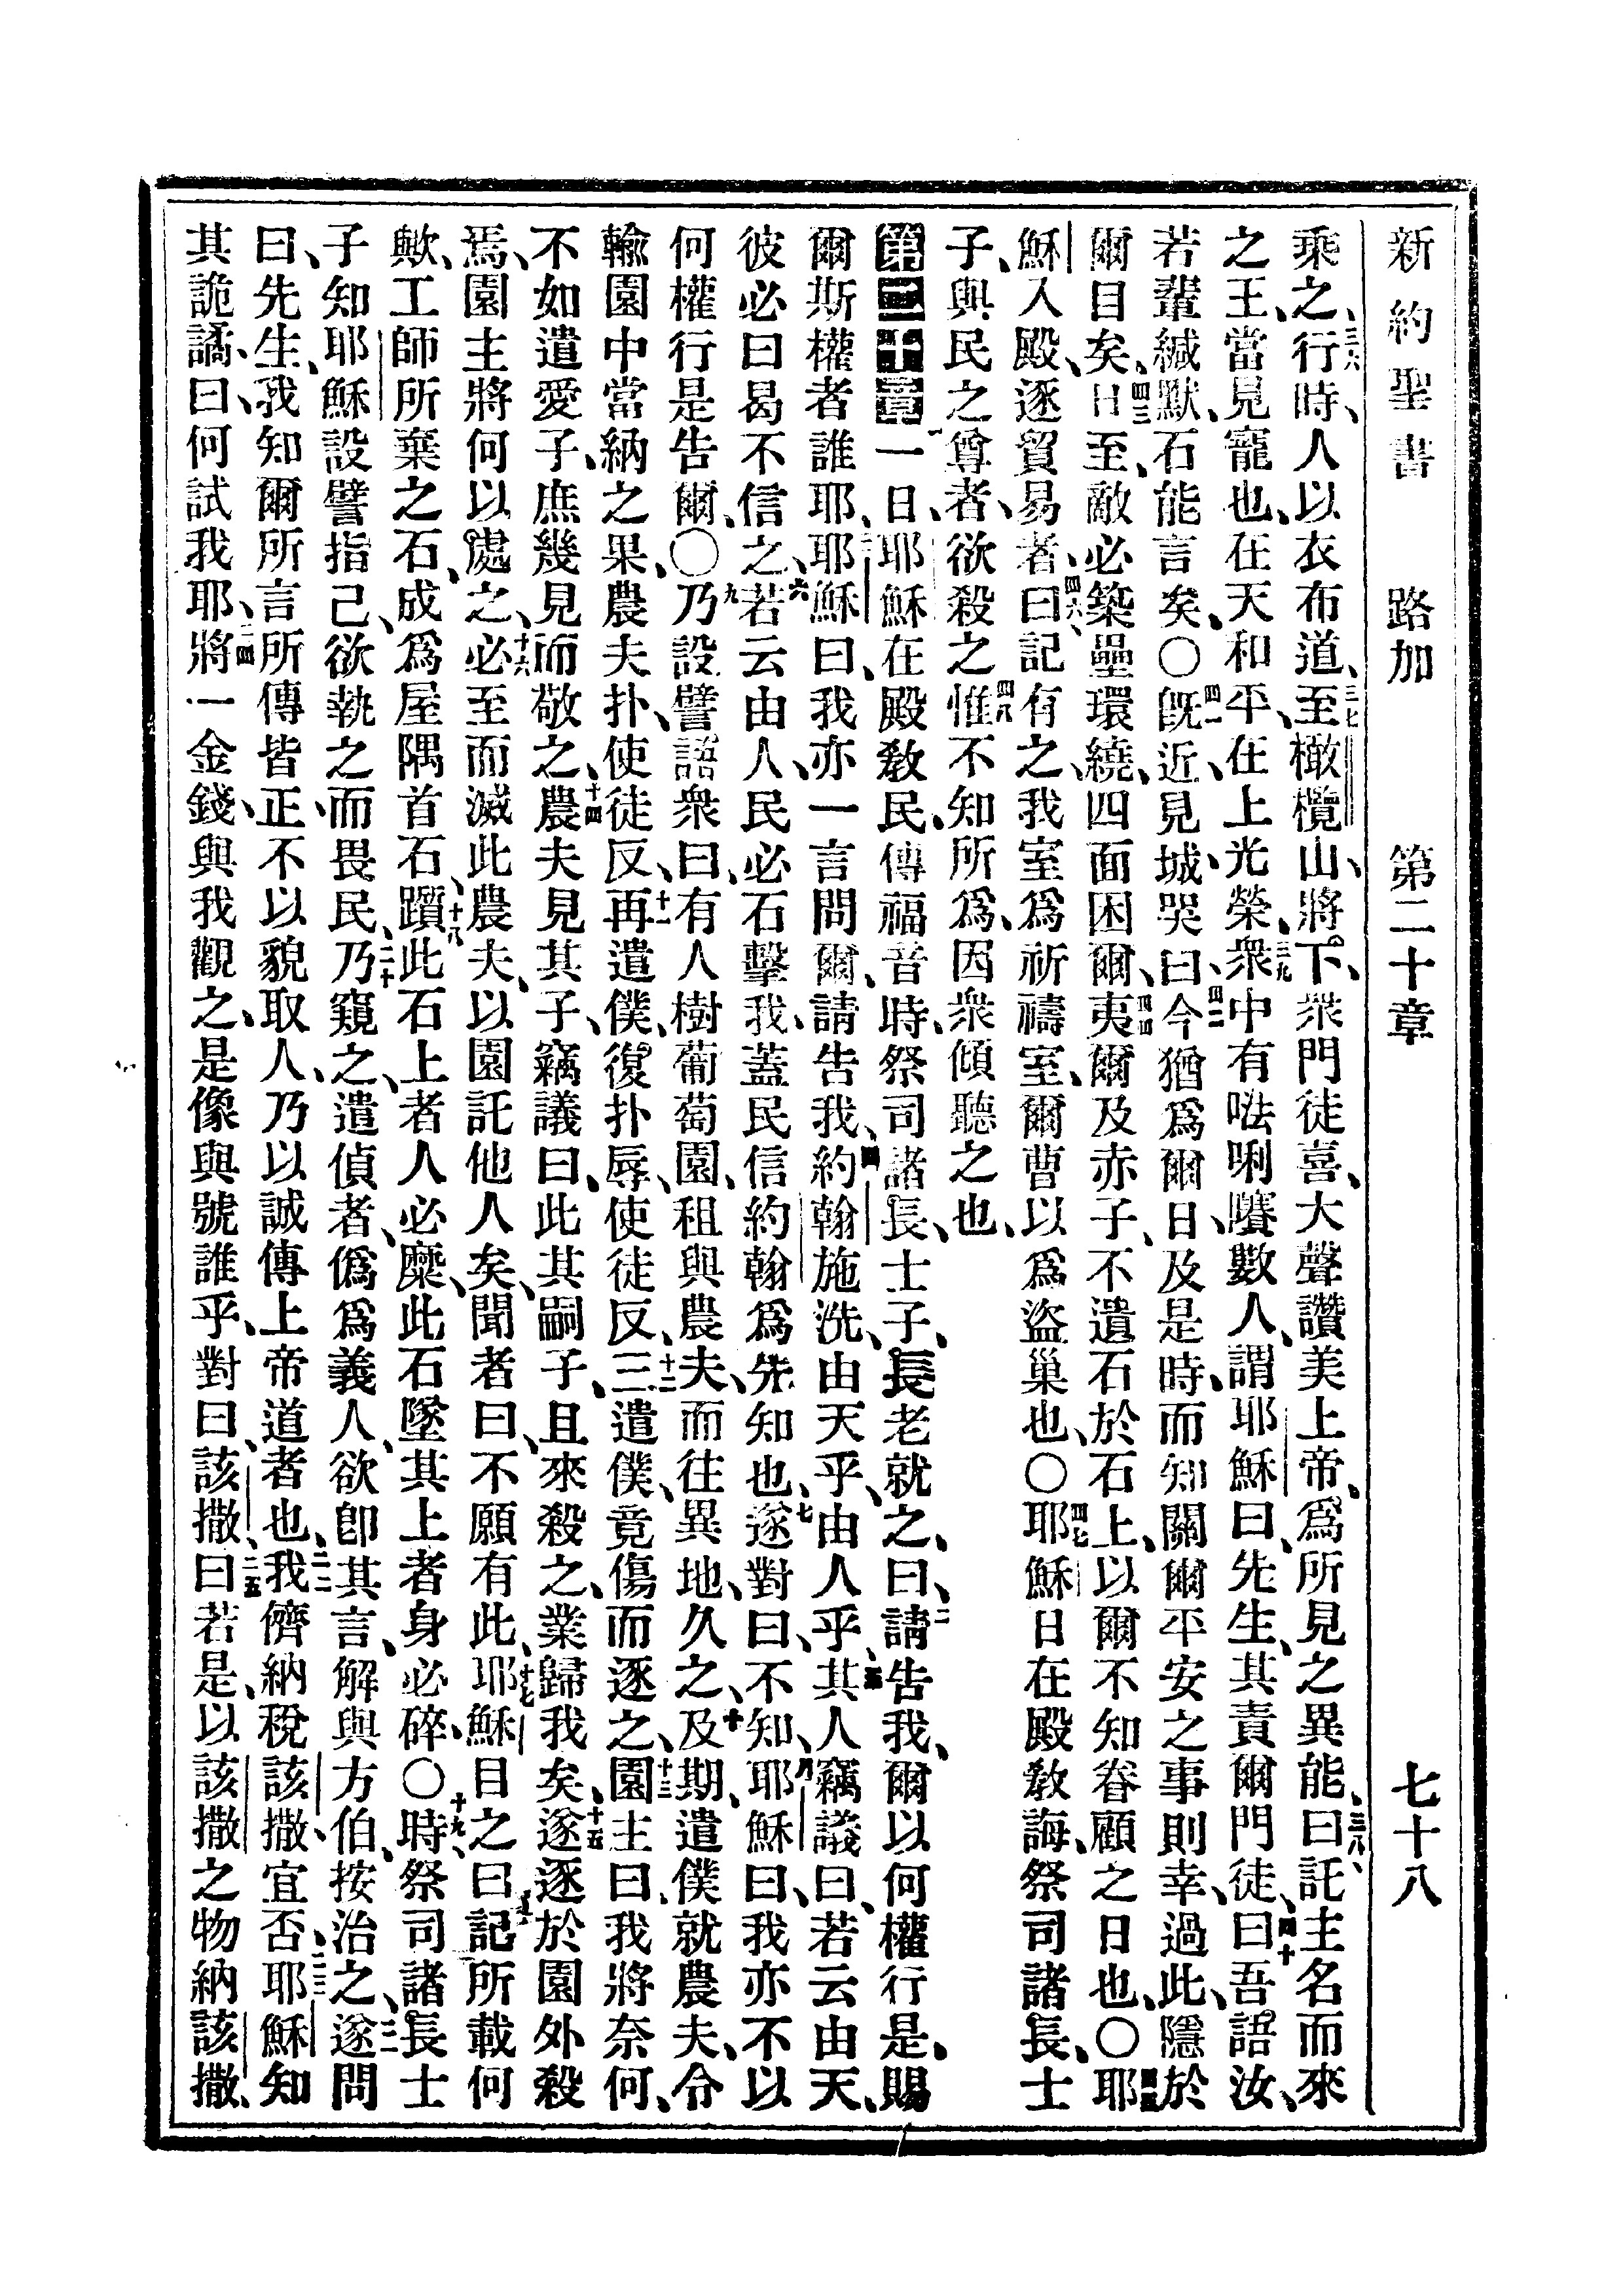 新約聖書 路加 第二十章 七十八
乘之、三六行時、人以衣布道、三七至橄欖山、將下、衆門徒喜、大聲讚美上帝、爲所見之異能、三八曰、託主名而來
之王、當見寵也、在天和平、在上光榮、三九衆中有𠵽唎㘔數人、謂耶穌曰、先生、其責爾門徒、四十曰、吾語汝、
若輩緘默、石能言矣、〇四一旣近、見城、哭曰、四二今猶爲爾日、及是時、而知關爾平安之事則幸、過此、隱於
爾目矣、四三日至、敵必築壘環繞、四面困爾、四四夷爾及赤子、不遺石於石上、以爾不知眷顧之日也、〇四五耶
穌入殿、逐貿易者、四六曰、記有之、我室爲祈禱室、爾曹以爲盜巢也、〇四七耶穌日在殿敎誨、祭司諸長、士
子、與民之尊者、欲殺之、四八惟不知所爲、因衆傾聽之也、
第二十章 一一日、耶穌在殿敎民、傳福音時、祭司諸長、士子、長老就之、二曰、請告我、爾以何權行是、賜
爾斯權者誰耶、三耶穌曰、我亦一言問爾、請告我、四約翰施洗、由天乎、由人乎、五其人竊議曰、若云由天、
彼必曰曷不信之、六若云由人、民必石擊我、蓋民信約翰爲先知也、七遂對曰、不知、八耶穌曰、我亦不以
何權行是告爾、〇九乃設譬語衆曰、有人樹葡萄園、租與農夫、而往異地、久之、十及期、遣僕就農夫、令
輸園中當納之果、農夫扑、使徒反、十一再遣僕、復扑辱、使徒反、十二三遣僕、竟傷而逐之、十三園主曰、我將奈何、
不如遣愛子、庶幾見而敬之、十四農夫見其子、竊議曰、此其嗣子、且來殺之、業歸我矣、十五遂逐於園外殺
焉、園主將何以處之、十六必至而滅此農夫、以園託他人矣、聞者曰、不願有此、十七耶穌目之曰、記所載何
歟、工師所棄之石、成爲屋隅首石、十八躓此石上者、人必糜、此石墜其上者、身必碎、〇十九時、祭司諸長士
子、知耶穌設譬指己、欲執之、而畏民、二十乃窺之、遣偵者、僞爲義人、欲卽其言、解與方伯、按治之、二一遂問
曰、先生、我知爾所言所傳皆正、不以貌取人、乃以誠傳上帝道者也、二二我儕納稅該撒、宜否、二三耶穌知
其詭譎、曰、何試我耶、二四將一金錢、與我觀之、是像與號誰乎、對曰、該撒、二五曰、若是、以該撒之物納該撒、